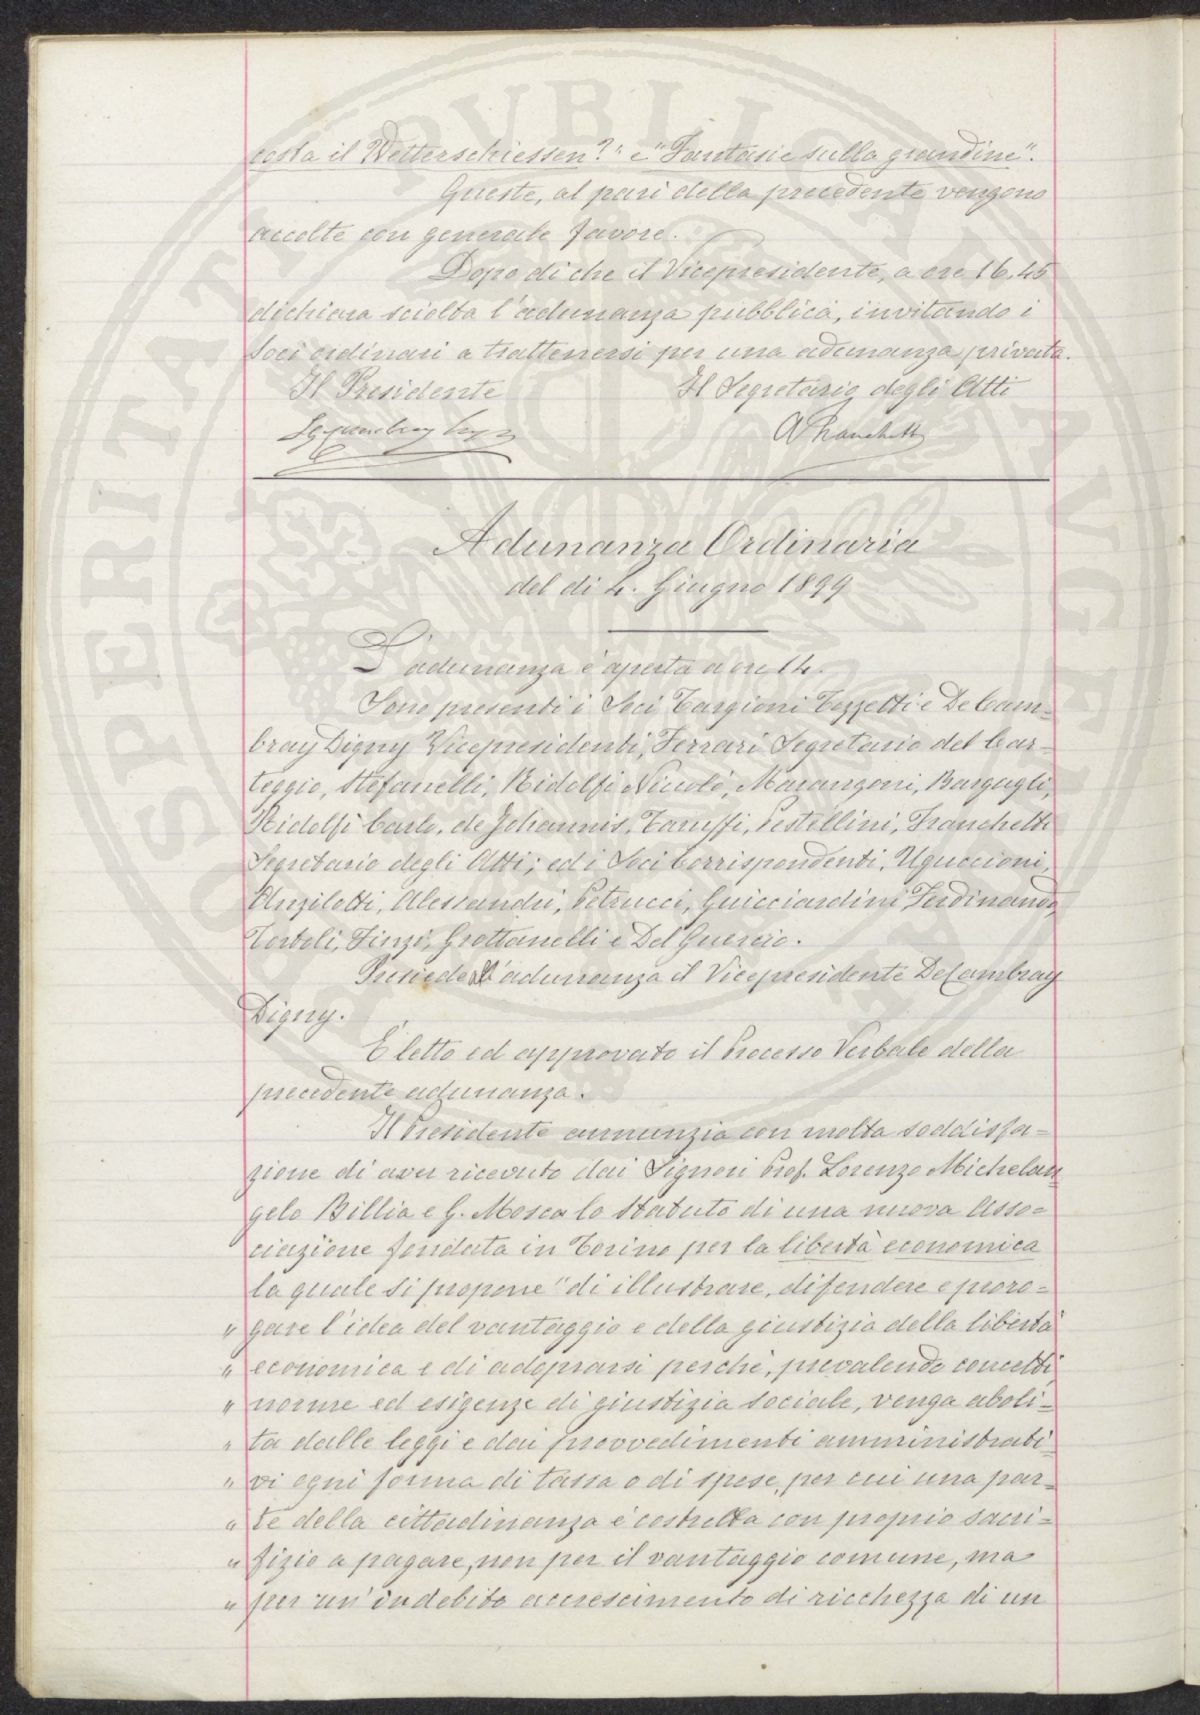 costa il Wetterschiessen?" e "Fantasie sulla grandine".
Queste, al pari della precedente vengono
accolte con generale favore.
Dopo di che il Vicepresidente, a ore 16,45
dichiara sciolta l'adunanza pubblica, invitando i
Soci ordinari a trattenersi per una adunanza privata.
Il Presidente Il Segretario degli Atti
A Franchetti
Adunanza Ordinaria
del dì 4. Giugno 1899
L'adunanza è aperta a ore 14.
Sono presenti i Soci Targioni Tozzetti e De Cam=
bray Digny Vicepresidenti, Ferrari Segretario del Car=
teggio, Stefanelli, Ridolfi Niccolò, Marangoni, Bargagli,
Ridolfi Carlo, de Johannis, Taruffi, Pestellini, Franchetti
Segretario degli Atti; ed i Soci Corrispondenti, Uguccioni,
Anzilotti, Alessandri, Petrucci, Guicciardini Ferdinando,
Tortoli, Finzi, Grottanelli e Del Guercio.
Presiede l'adunanza il Vicepresidente De Cambray
Digny.
È letto ed approvato il Processo Verbale della
precedente adunanza.
Il Presidente annunzia con molta soddisfa=
zione di aver ricevuto dai Signori Prof. Lorenzo Michelan=
gelo Billia e G. Mosca lo Statuto di una nuova Asso=
ciazione fondata in Torino per la libertà economica
la quale si propone "di illustrare, difendere e proro=
" gare l'idea del vantaggio e della giustizia della libertà
" economica e di adoprarsi perchè, prevalendo concetti,
" norme ed esigenze di giustizia sociale, venga aboli=
" ta dalle leggi e dai provvedimenti amministrati=
" vi ogni forma di tassa o di spese, per cui una par=
" te della cittadinanza è costretta con proprio sacri=
" fizio a pagare, non per il vantaggio comune, ma
" per un' indebito accrescimento di ricchezza di un
PROSPERITATI PVBLICAE AVGENDAE